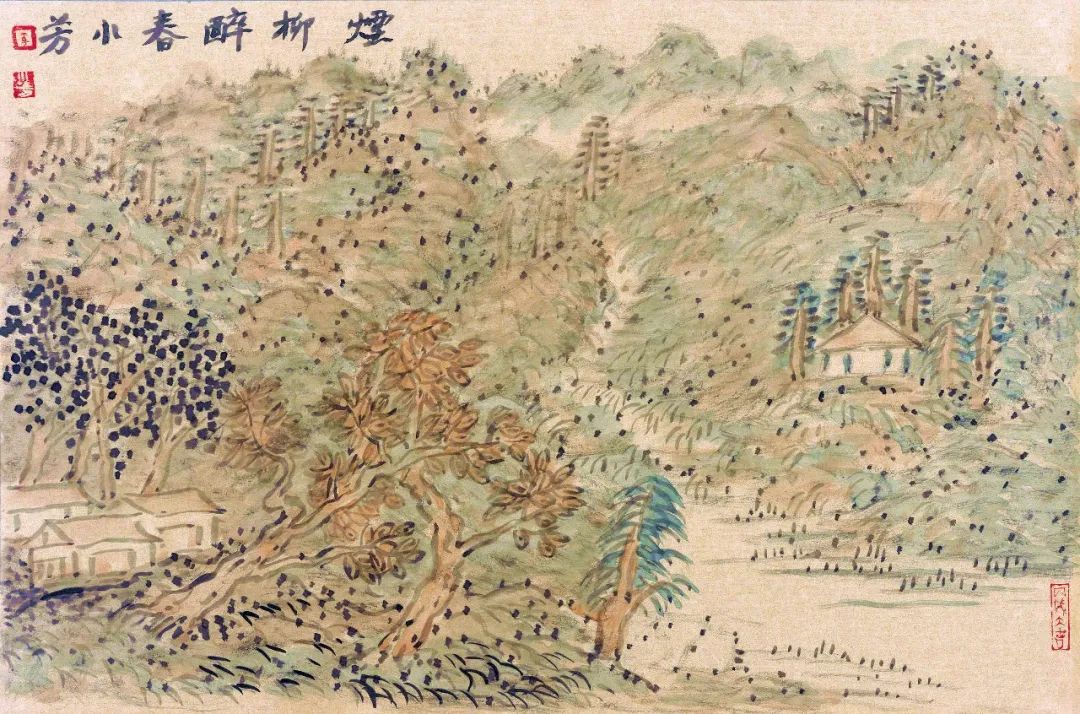 煙柳醉春小芳